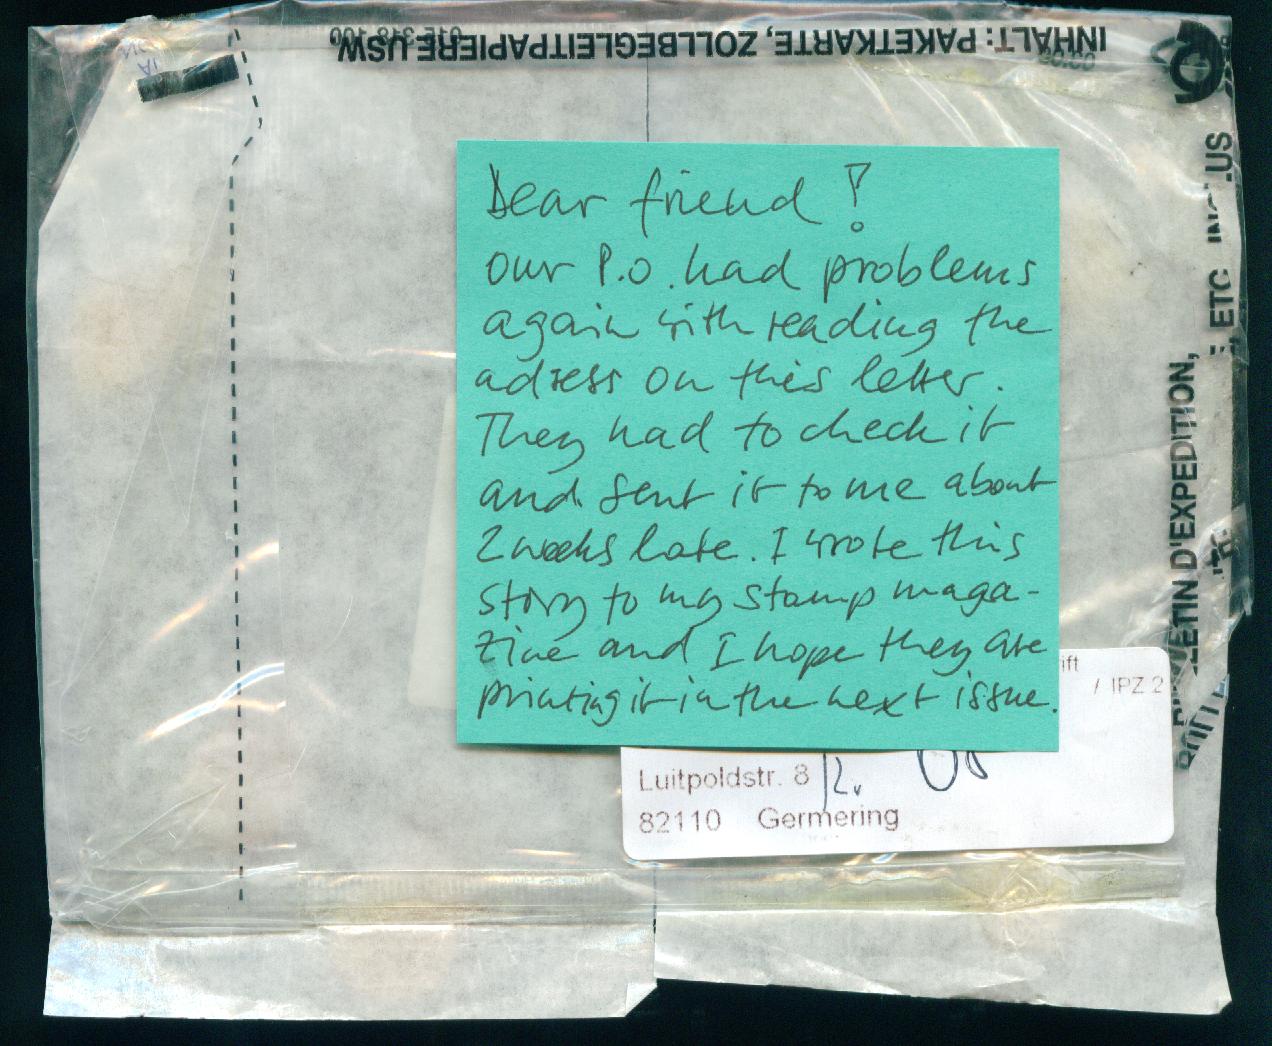 INHALT: PAKETKARTE, ZOLLBEGLEITPAPIERE USW
015 318 100
Dear friend!
our P.O. had problems
again with reading the
adress on this letter.
They had to check it
and sent it to me about
2 weeks late. I wrote this
story to my stamp maga-
zine and I hope they are
printing it in the next issue.
ift
/ IPZ 2
Luitpoldstr. 8
82110 Germering
D'EXPEDITION,
ETC